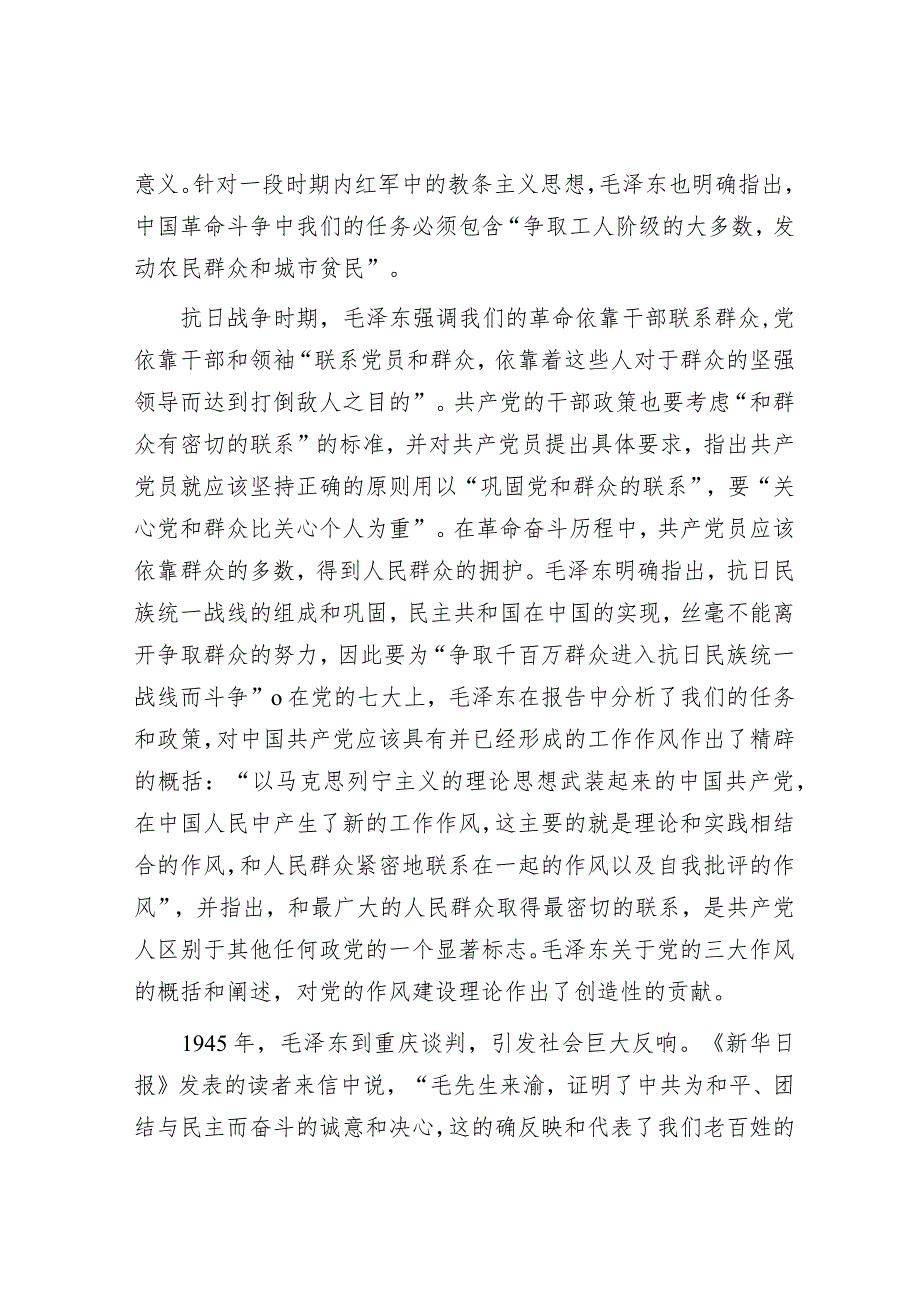 意义。针对一段时期内红军中的教条主义思想，毛泽东也明确指出，
中国革命斗争中我们的任务必须包含“争取工人阶级的大多数，发
动农民群众和城市贫民”。
抗日战争时期，毛泽东强调我们的革命依靠干部联系群众,党
依靠干部和领袖“联系党员和群众，依靠着这些人对于群众的坚强
领导而达到打倒敌人之目的”。共产党的干部政策也要考虑“和群
众有密切的联系”的标准，并对共产党员提出具体要求，指出共产
党员就应该坚持正确的原则用以“巩固党和群众的联系”，要“关
心党和群众比关心个人为重”。在革命奋斗历程中，共产党员应该
依靠群众的多数，得到人民群众的拥护。毛泽东明确指出，抗日民
族统一战线的组成和巩固，民主共和国在中国的实现，丝毫不能离
开争取群众的努力，因此要为“争取千百万群众进入抗日民族统一
战线而斗争”o在党的七大上，毛泽东在报告中分析了我们的任务
和政策，对中国共产党应该具有并已经形成的工作作风作出了精辟
的概括：“以马克思列宁主义的理论思想武装起来的中国共产党，
在中国人民中产生了新的工作作风，这主要的就是理论和实践相结
合的作风，和人民群众紧密地联系在一起的作风以及自我批评的作
风”，并指出，和最广大的人民群众取得最密切的联系，是共产党
人区别于其他任何政党的一个显著标志。毛泽东关于党的三大作风
的概括和阐述，对党的作风建设理论作出了创造性的贡献。
1945年，毛泽东到重庆谈判，引发社会巨大反响。《新华日
报》发表的读者来信中说，“毛先生来渝，证明了中共为和平、团
结与民主而奋斗的诚意和决心，这的确反映和代表了我们老百姓的